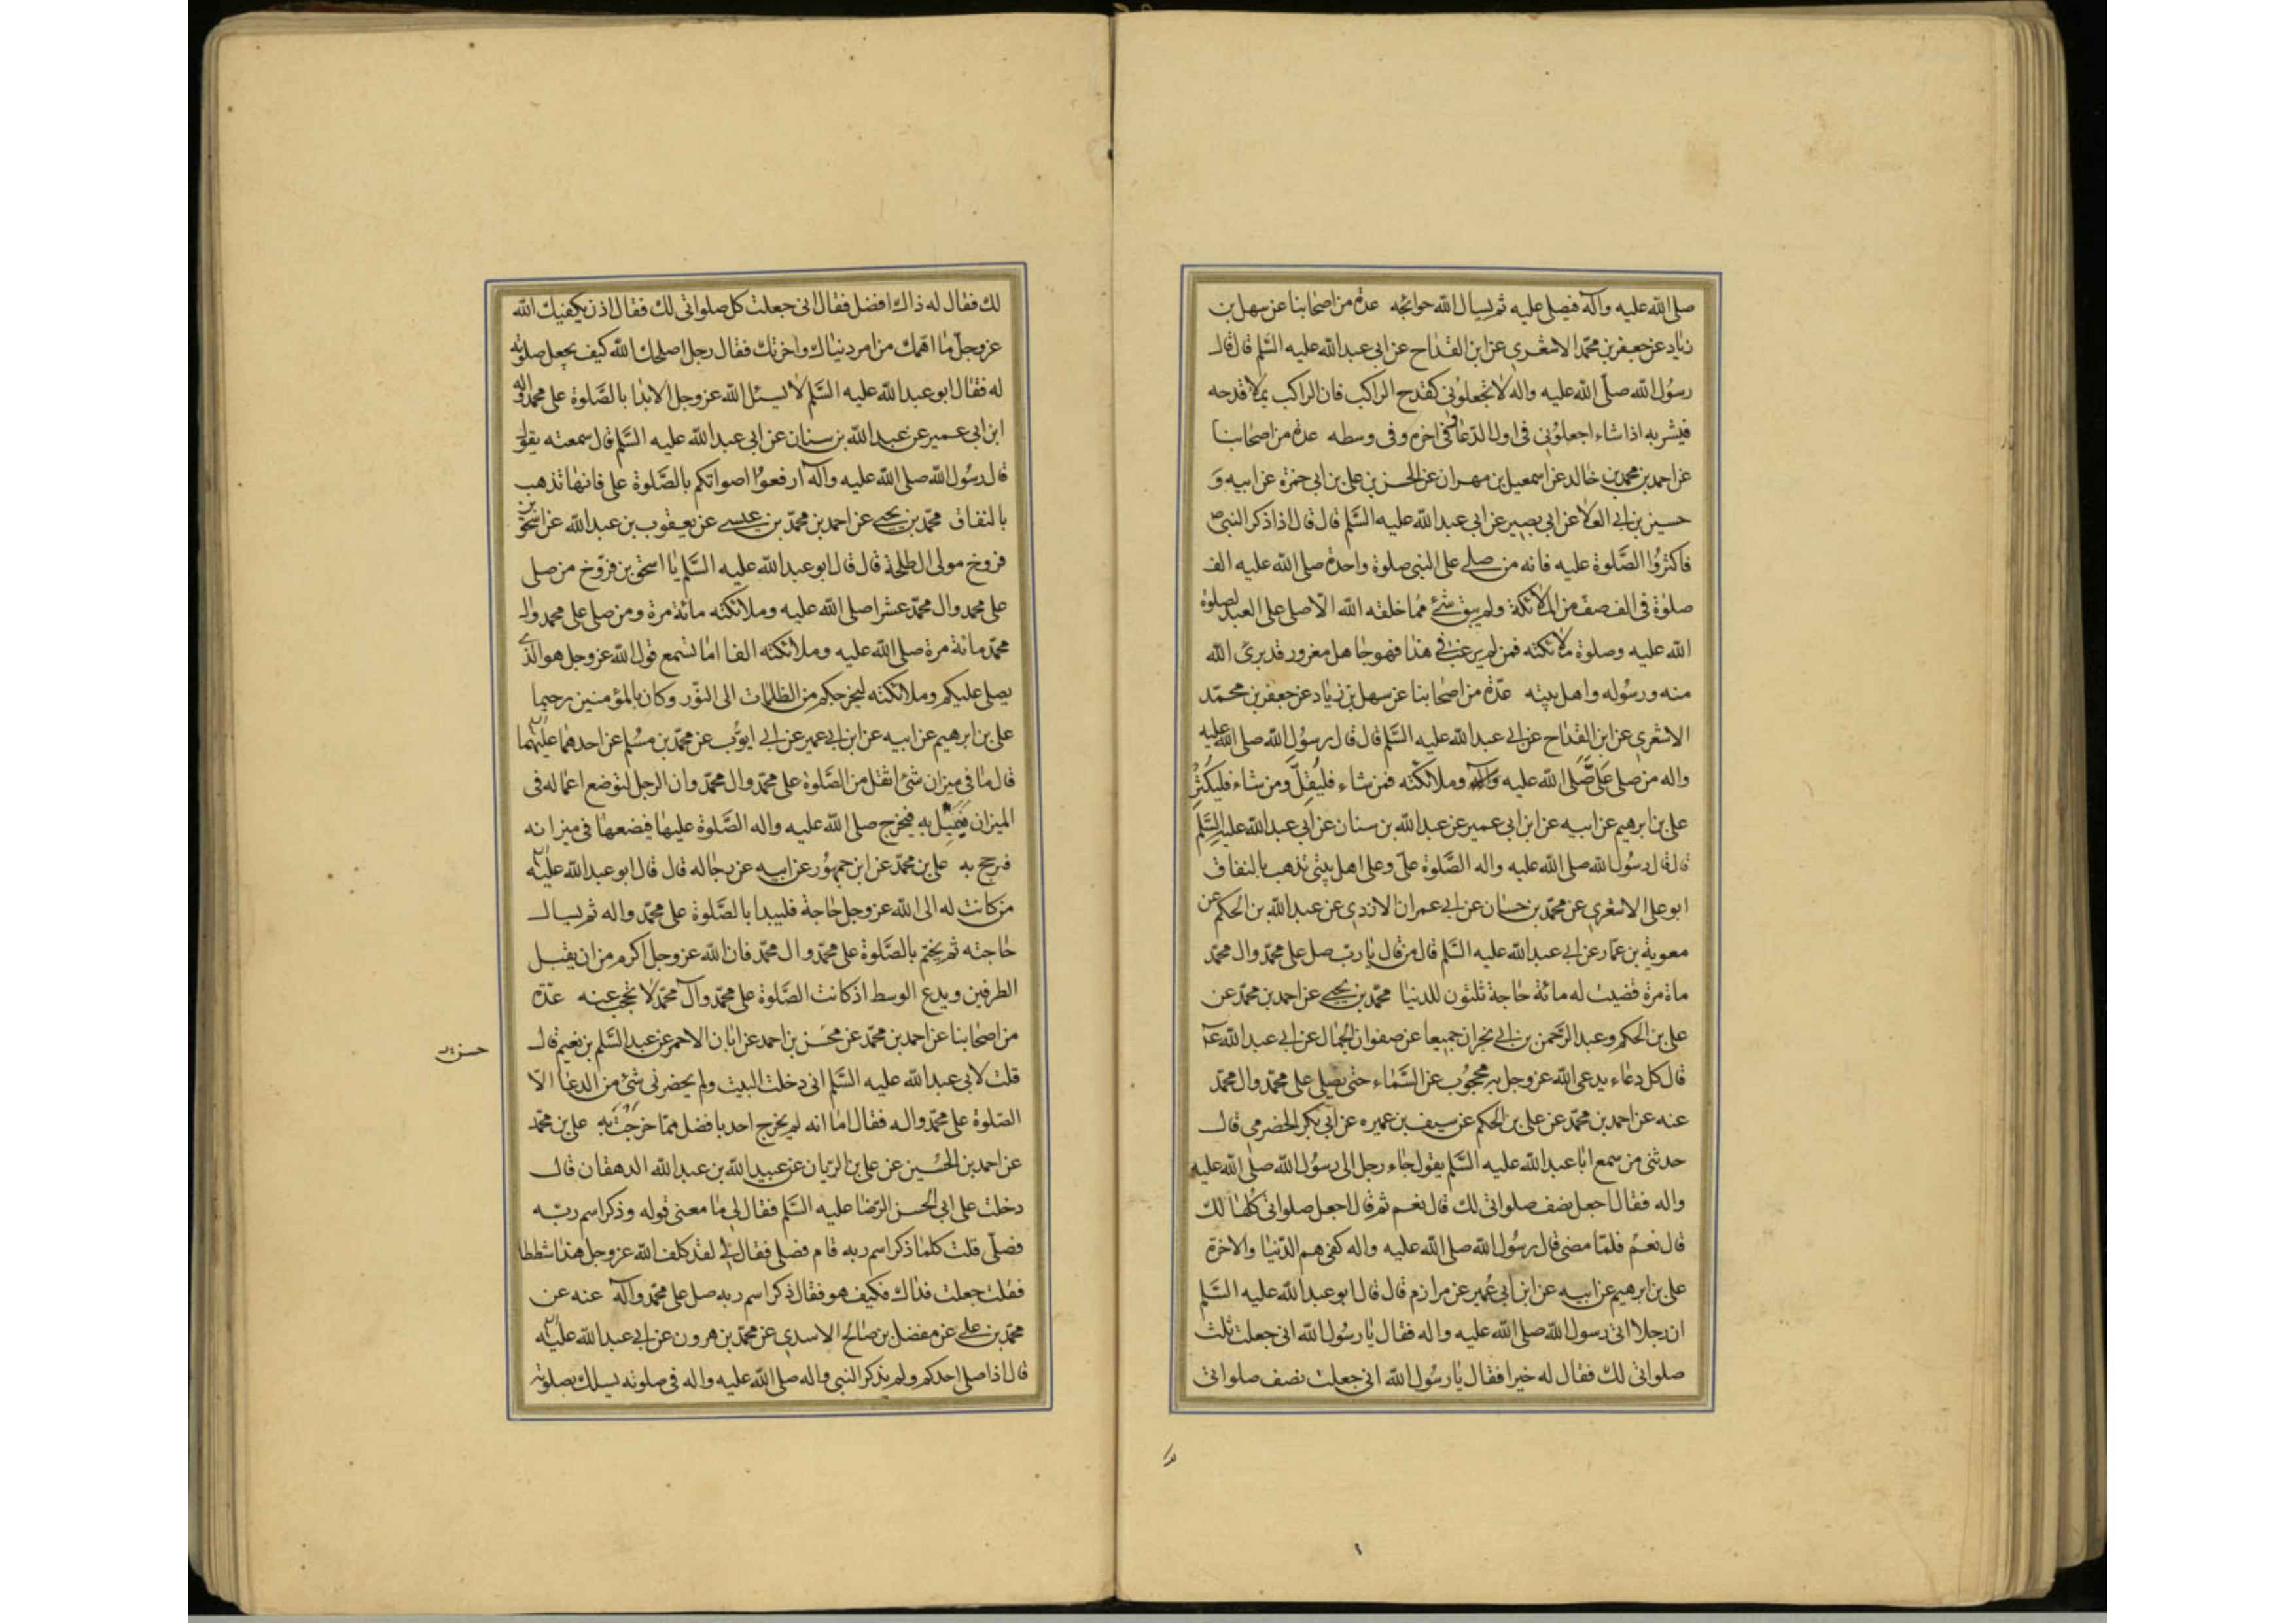 صلى الله عليه وآله فيصلى عليه ثم يسال الله حوائجه عدة من اصحابنا عن سهل بن
زياد عن جعفر بن محمد الاشعرى عن ابن القداح عن ابى عبد الله عليه السلم قال قال
رسول الله صلى الله عليه واله لا تجعلونى كقدح الراكب فان الراكب يملا قدحه
فيشربه اذا شاء اجعلونى فى اول الدعا وفى اخره وفى وسطه عدة من اصحابنا
عن احمد بن محمد بن خالد عن اسمعيل بن مهران عن الحسن بن على بن ابى حمزة عن ابيه و
حسين بن ابى العلا عن ابى بصير عن ابى عبد الله عليه السلم قال قال اذا ذكر النبى ص
فاكثروا الصلوة عليه فانه من صلى على النبى صلوة واحدة صلى الله عليه الف
صلوة فى الف صف من الملائكة ولم يبق شئ مما خلقه الله الا صلى على العبد لصلوة
الله عليه وصلوة ملائكته فمن لم يرغب فى هذا فهو جاهل مغرور قد برئ الله
منه ورسوله واهل بيته عدة من اصحابنا عن سهل بن زياد عن جعفر بن محمد
الاشعرى عن ابن القداح عن ابى عبد الله عليه السلم قال قال رسول الله صلى الله عليه
واله من صلى على صلى الله عليه وملائكته فمن شاء فليقل ومن شاء فليكثر
على بن ابرهيم عن ابيه عن ابن ابى عمير عن عبد الله بن سنان عن ابى عبد الله عليه السلم
قال قال رسول الله صلى الله عليه واله الصلوة على وعلى اهل بيتى تذهب بالنفاق
ابو على الاشعرى عن محمد بن حسان عن ابى عمران الازدى عن عبد الله بن الحكم عن
معوية بن عمار عن ابى عبد الله عليه السلم قال من قال يا رب صل على محمد وال محمد
ماة مرة قضيت له مائة حاجة ثلثون للدنيا محمد بن يحيى عن احمد بن محمد عن
على بن الحكم وعبد الرحمن بن ابى نجران جميعا عن صفوان الجمال عن ابى عبد الله ع
قال كل دعاء يدعى الله عز وجل به محجوب عن السماء حتى يصلى على محمد وال محمد
عنه عن احمد بن محمد عن على بن الحكم عن سيف بن عميره عن ابى بكر الحضرمى قال
حدثنى من سمع ابا عبد الله عليه السلم يقول جاء رجل الى رسول الله صلى الله عليه
واله فقال اجعل نصف صلواتى لك قال نعم ثم قال اجعل صلواتى كلها لك
قال نعم فلما مضى قال رسول الله صلى الله عليه واله كفى هم الدنيا والاخرة
على بن ابرهيم عن ابيه عن ابن ابى عمير عن مرازم قال قال ابو عبد الله عليه السلم
ان رجلا اتى رسول الله صلى الله عليه واله فقال يا رسول الله انى جعلت ثلث
صلواتى لك فقال له خيرا فقال يا رسول الله انى جعلت نصف صلواتى
لك فقال له ذاك افضل فقال انى جعلت كل صلواتى لك فقال اذن يكفيك الله
عز وجل ما اهمك من امر دنياك واخرتك فقال رجل اصلحك الله كيف يجعل صلوته
له فقال ابو عبد الله عليه السلم لا يسئل الله عز وجل الا بدا بالصلوة على محمد واله
ابن ابى عمير عن عبد الله بن سنان عن ابى عبد الله عليه السلم قال سمعته يقول
قال رسول الله صلى الله عليه وآله ارفعوا اصواتكم بالصلوة على فانها تذهب
بالنفاق محمد بن يحيى عن احمد بن محمد بن عيسى عن يعقوب بن عبد الله عن اسحق بن
فروخ مولى ال طلحة قال قال ابو عبد الله عليه السلم يا اسحق بن فروخ من صلى
على محمد وال محمد عشرا صلى الله عليه وملائكته مائة مرة ومن صلى على محمد وال
محمد مائة مرة صلى الله عليه وملائكته الفا اما تسمع قول الله عز وجل هو الذى
يصلى عليكم وملائكته ليخرجكم من الظلمات الى النور وكان بالمؤمنين رحيما
على بن ابرهيم عن ابيه عن ابن ابى عمير عن ابى ايوب عن محمد بن مسلم عن احدهما عليهما
قال ما فى ميزان شئ اثقل من الصلوة على محمد وال محمد وان الرجل لتوضع اعماله فى
الميزان فيميل به فيخرج صلى الله عليه واله الصلوة عليها فيضعها فى ميزانه
فرجح به على بن محمد عن ابن جمهور عن ابيه عن رجاله قال قال ابو عبد الله عليه
من كانت له الى الله عز وجل حاجة فليبدا بالصلوة على محمد واله ثم يسال
حاجته ثم يختم بالصلوة على محمد وال محمد فان الله عز وجل اكرم من ان يقبل
الطرفين ويدع الوسط اذ كانت الصلوة على محمد وآل محمد لا تحجب عنه عدة
من اصحابنا عن احمد بن محمد عن محسن بن احمد عن ابان الاحمر عن عبد السلم بن نعيم قال
قلت لابى عبد الله عليه السلم انى دخلت البيت ولم يحضرنى شئ من الدعا الا
الصلوة على محمد واله فقال اما انه لم يخرج احد بافضل مما خرجت به على بن محمد
عن احمد بن الحسين عن على بن الريان عن عبيد الله بن عبد الله الدهقان قال
دخلت على ابى الحسن الرضا عليه السلم فقال لى ما معنى قوله وذكر اسم ربه
فصلى قلت كلما ذكر اسم ربه قام فصلى فقال لى لقد كلف الله عز وجل هذا شططا
فقلت جعلت فداك فكيف هو فقال ذكر اسم ربه صل على محمد وآله عنه عن
محمد بن على عن مفضل بن صالح الاسدى عن محمد بن هرون عن ابى عبد الله عليه
قال اذا صلى احدكم ولم يذكر النبى واله صلى الله عليه واله فى صلوته يسلك بصلوته